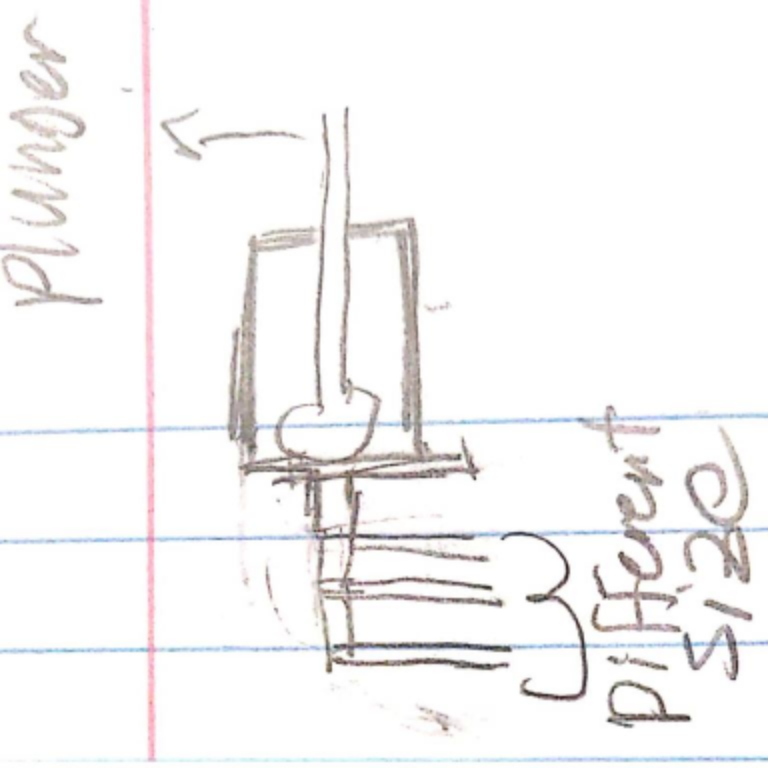 Plunger
Different
size